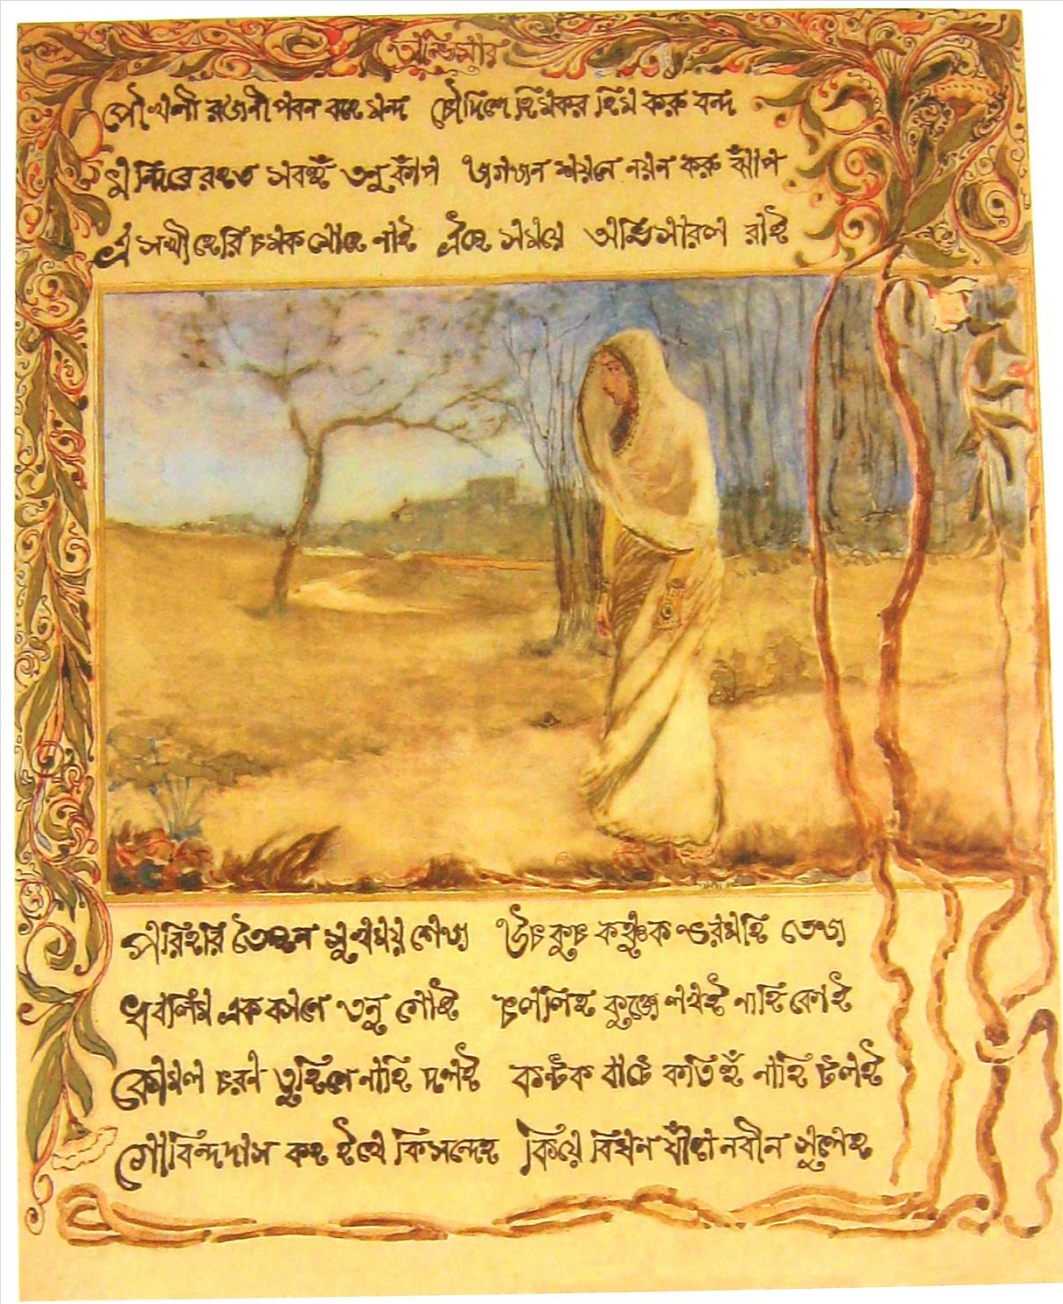 অভিসার
পৌখলী রজনী পবন বহে মন্দ চৌদিশে হিমকর হিম করু বন্দ
মন্দিরে রহত সবহুঁ তনু কাঁপ জগজন শয়নে নয়ন করু ঝাঁপ
এ সখী হেরি চমক মোহে লাই ঐছে সময়ে অভিসারল রাই
পরিহরি তৈছন সুখময় শেজ উচ কুচ কঞ্চুক ভরমহি তেজ
ধবলিম এক বসনে তনু গোই চললিহ কুঞ্জে লখই নাহি কোই
কোমল চরণ তুহিনে নাহি দলই কন্টক বাটে কতিহুঁ নাহি টলই
গোবিন্দদাস কহ ইথে কি সন্দেহ কিয়ে বিঘন যাঁহা নবীন সুলেহ